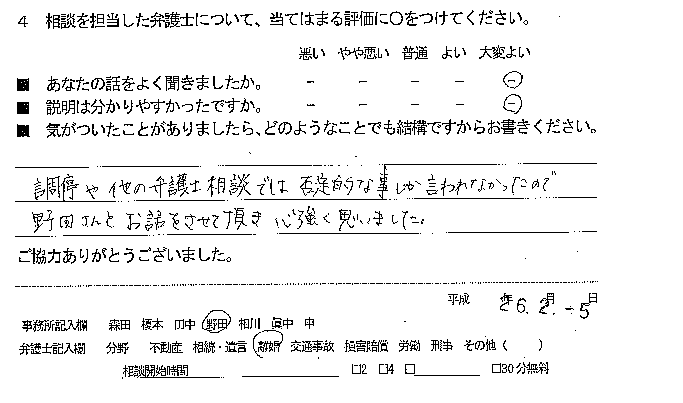 4 相談を担当した弁護士について、当てはまる評価に〇をつけてください。
悪い やや悪い 普通 よい 大変よい
■ あなたの話をよく聞きましたか。 － － － － －
■ 説明は分かりやすかったですか。 － － － － －
■ 気がついたことがありましたら、どのようなことでも結構ですからお書きください。
調停や他の弁護士相談では否定的な事しか言われなかったので
野田さんとお話をさせて頂き心強く思いました。
ご協力ありがとうございました。
平成 26年 2月 -5日
事務所記入欄 森田 榎本 田中 野田 相川 眞中 申
弁護士記入欄 分野 不動産 相続・遺言 離婚 交通事故 損害賠償 労働 刑事 その他（ ）
相談開始時間 □2 □4 □ □30分無料